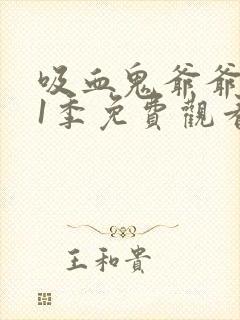 吸血鬼爷爷
1季免費觀看
王和貴